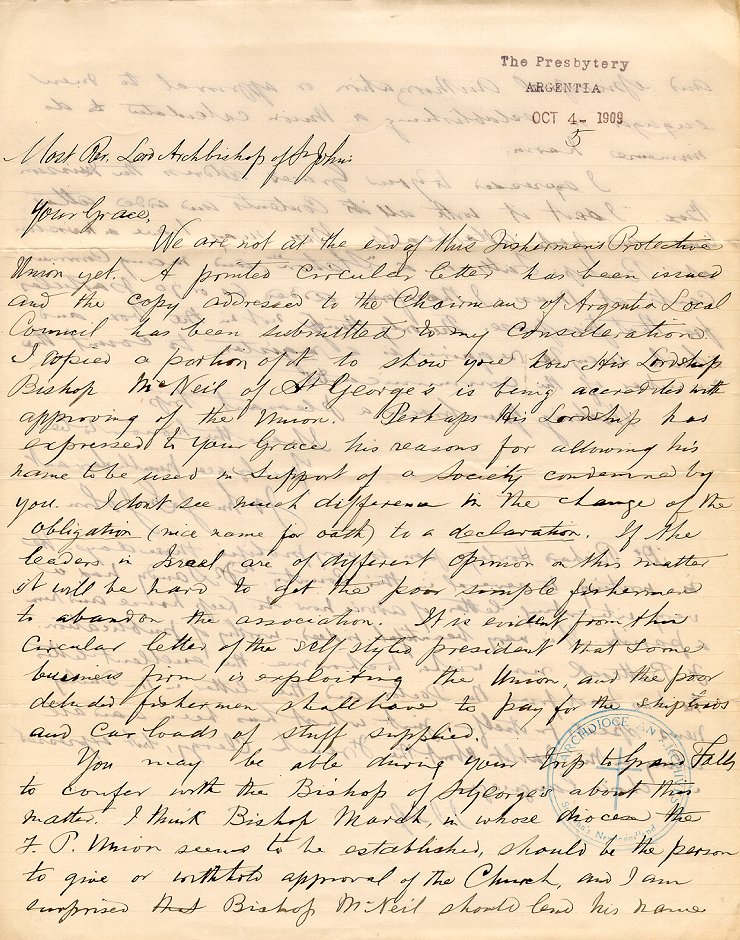 The Presbytery
ARGENTIA
OCT 4- 1909
5
Most Rev. Lord Archbishop of St John's
Your Grace,
We are not at the end of this Fishermens Protective
Union yet. A printed circular letter has been issued
and the copy addressed to the Chairman of Argentia Local
Council has been submitted to my consideration.
I copied a portion of it to show you how His Lordship
Bishop McNeil of St George's is being accredited with
approving of the Union. Perhaps His Lordship has
expressed to Your Grace his reasons for allowing his
name to be used in support of a society condemned by
you. I dont see much difference in the change of the
obligation (nice name for oath) to a declaration. If the
leaders in Israel are of different opinion on this matter
it will be hard to get the poor simple fishermen
to abandon the association. It is evident from this
circular letter of the self styled president that some
business firm is exploiting the Union, and the poor
deluded fishermen shall have to pay for the shiploads
and car loads of stuff supplied.
You may be able during your trip to Grand Falls
to confer with the Bishop of St George's about this
matter. I think Bishop March, in whose diocese the
F. P. Union seems to be established, should be the person
to give or withhold approval of the Church, and I am
surprised that Bishop McNeil should lend his name